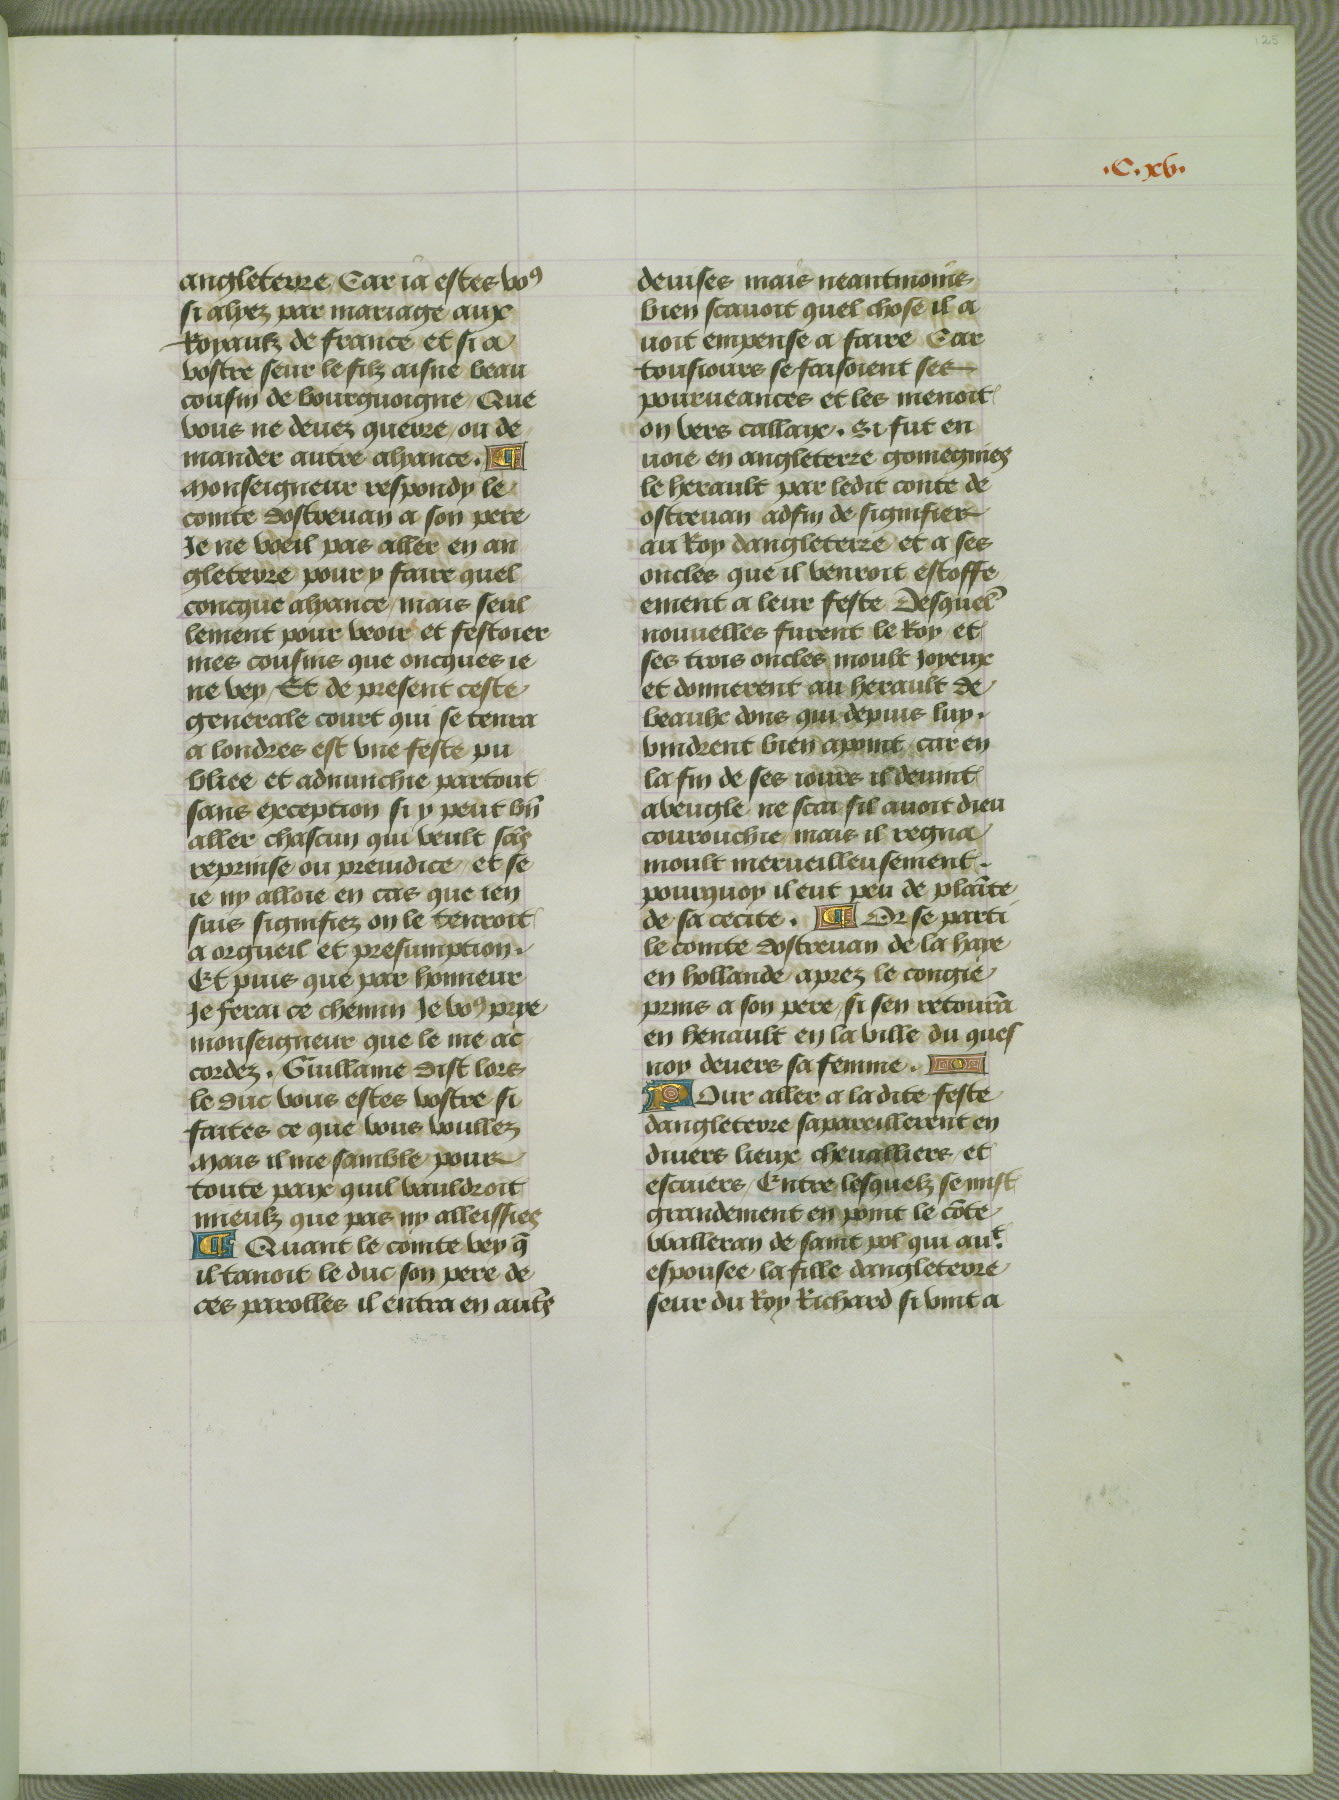 125
.C.xv.
angleterre Car ia estes voꝰ
si alyez par mariage aux
Royaulz de france et si a
vostre seur le filz aisne beau
cousin de bourguoigne Que
vous ne deuez querre ou de
mander autre alyance. ¶
Monseigneur respondy le
comte dostreuan a son pere
Je ne voeil pas aller en an
gleterre pour y faire quel
concque alyance mais seul
lement pour veoir et festoier
mes cousins que oncques ie
ne vey Et de present ceste
generale court qui se tenra
a londres est vne feste pu
bliee et adnunchie partout
sans exception si y peut bñ
aller chascun qui veult sãs
reprinse ou preiudice et se
ie ny alloie en cas que ien
suis signifiez on le tenroit
a orgueil et presumption.
Et puis que par honneur
Je ferai ce chemin Je voꝰ prye
monseigneur que le me ac
cordez. Guillame dist lors
le duc vous estes vostre si
faites ce que vous voullez
Mais il me samble pour
toute paix quil vauldroit
mieulz que pas ny alleissies
¶ Quant le comte vey q̃
il tanoit le duc son pere de
ces parolles il entra en autr̃s
deuises mais neantmoins
bien scauoit quel chose il a
uoit empense a faire Car
tousiours se faisoient ses
pourueances et les menoit
on vers callaix. Si fut en
uoie en angleterre gomegnies
le herault par ledit conte de
ostreuan adfin de signifier
au Roy dangleterre et a ses
oncles que il venroit estoffe
ement a leur feste Desquel̃
nouuelles furent le Roy et
ses trois oncles moult Joyeux
et donnerent au herault de
beaulx dons qui depuis luy.
vindrent bien apoint car en
la fin de ses iours il deuint
aveugle ne scai sil auoit dieu
courouchie mais il regna
moult merueilleusement.
pourquoy il eut peu de plaĩte
de sa cecite. ¶ Or se parti
le comte dostreuan de la haye
en hollande aprez le congie
prins a son pere si sen retourã
en henault en la ville du ques
noy deuers sa femme.
Pour aller a la dite feste
dangleterre sapareillerent en
diuers lieux chevalliers et
escuiers Entre lesquelz se mist
grandement en point le cõte
walleran de saint pol qui auᵗ.
espousee la fille dangleterre
seur du Roy Richard si vint a